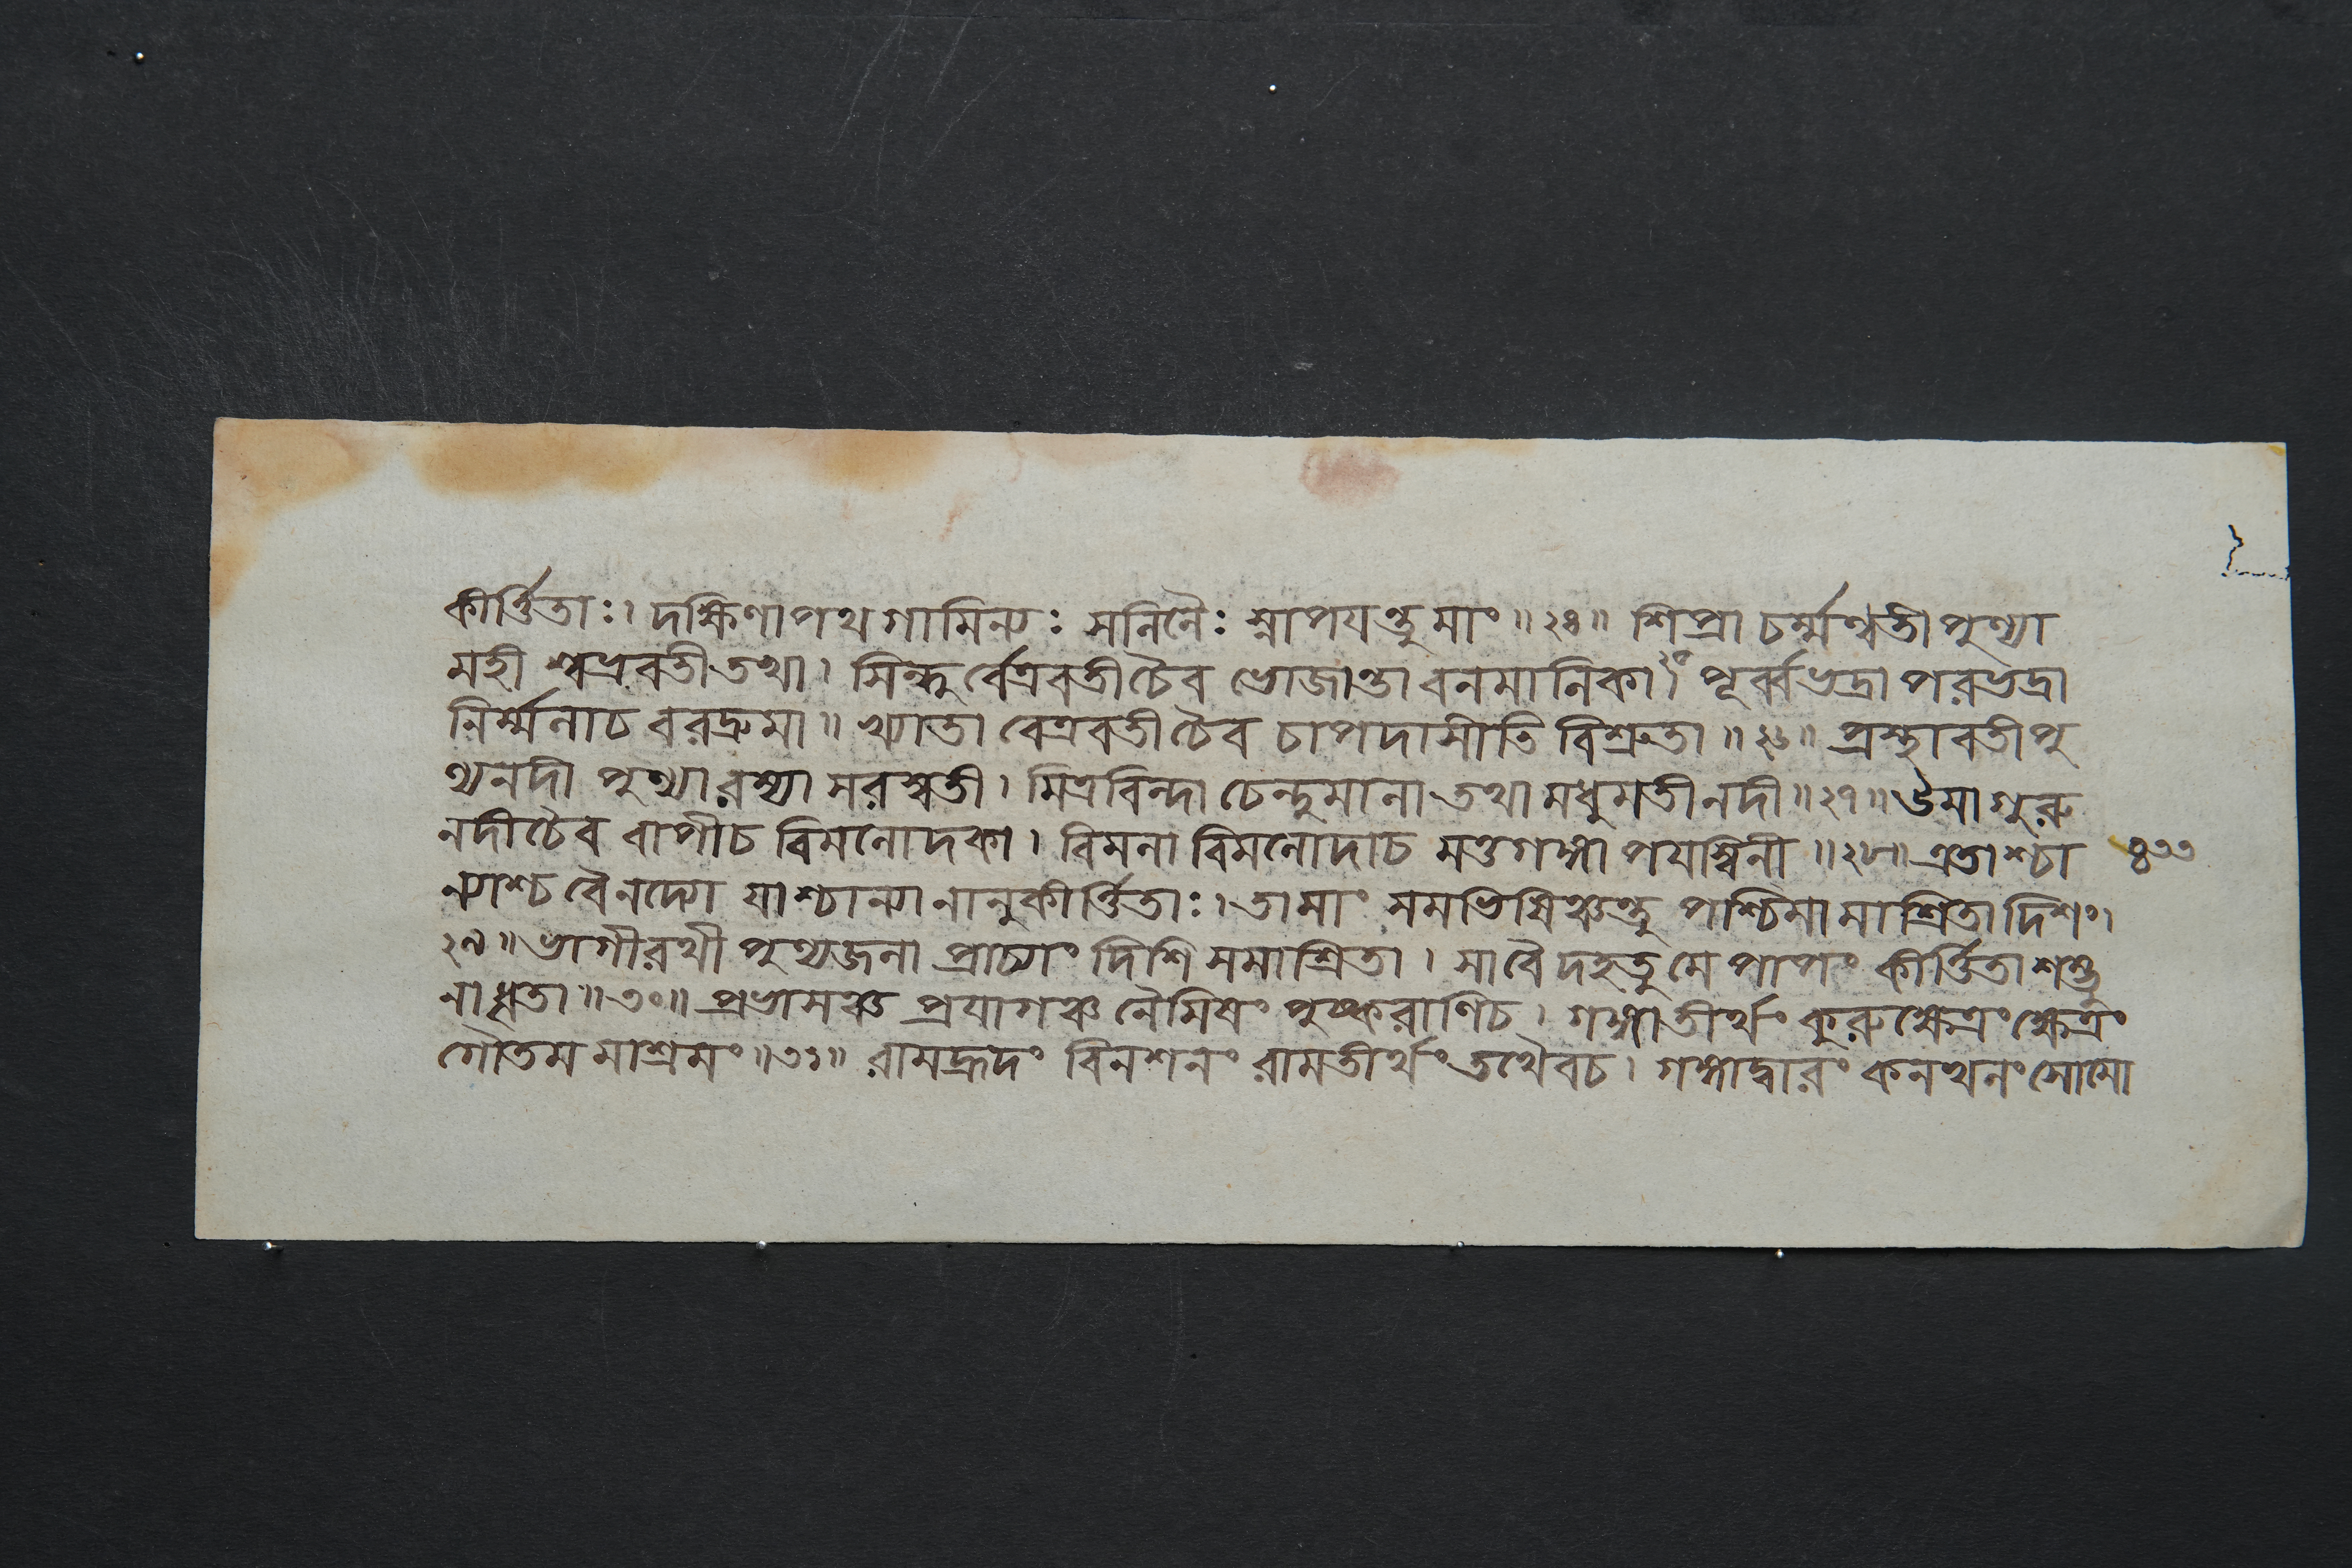 কীর্ত্তিতাঃ। দক্ষিণাপথগামিন্যঃ সলিলৈঃ স্নাপযন্তু মাং॥২৪॥ শিপ্রা চর্ম্মণ্বতী পুণ্যা
মহী শ্বভ্রবতী তথা। সিন্ধুর্বেত্রবতীচৈব ভোজান্তা বনমালিকা।২৫ পূর্ব্বভদ্রা পরভদ্রা
নির্ম্মলাচ বরদ্রুমা॥ খ্যাতা বেত্রবতীচৈব চাপদাসীতি বিশ্রুতা॥২৬॥ প্রস্থাবতী পু
ণ্যনদী পুণ্যারণ্যা সরস্বতী। মিত্রবিন্দা চেন্দুমালা তথা মধুমতী নদী॥২৭॥ উমা গুরু
নদীচৈব বাপীচ বিমলোদকা। বিমলা বিমলোদাচ মত্তগঙ্গা পযস্বিনী॥২৮॥ এতাশ্চা
ন্যাশ্চ বৈনদ্যো যাশ্চান্যা নানুকীর্ত্তিতাঃ। তামাং সমভিষিঞ্চন্তু পশ্চিমামাশ্রিতা দিশং।
২৯॥ ভাগীরথী পুণ্যজলা প্রাচ্যাং দিশি সমাশ্রিতা। সাবৈ দহতু মে পাপং কীর্ত্তিতা শম্ভু
নাধৃতা॥৩০॥ প্রভাসঞ্চ প্রযাগঞ্চ নৈমিষং পুষ্করাণিচ। গঙ্গাতীর্থং কুরুক্ষেত্রং ক্ষেত্রং
গৌতমমাশ্রমং॥৩১॥ রামহ্রদং বিনশনং রামতীর্থং তথৈবচ। গঙ্গাদ্বারং কনখলং সোমো
৪৩৩